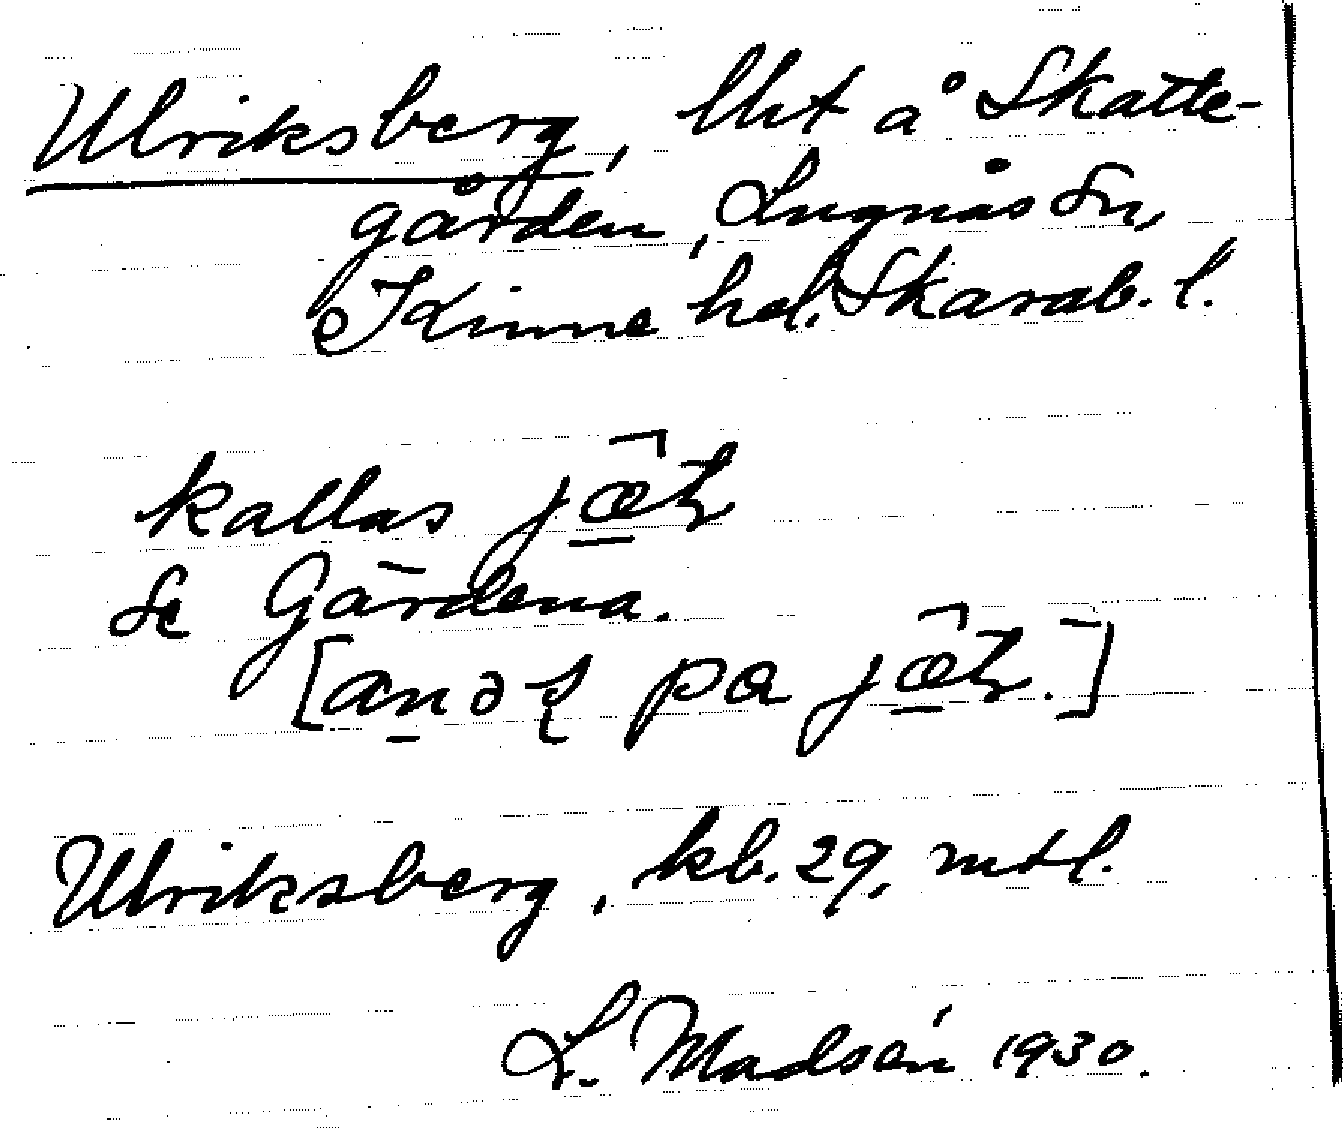 Ulriksberg, lht å Skatte-
gården, Lugnås sn,
Kinne hd. Skarab. l.
kallas
se Gärdena.
[
Ulriksberg, kb. 29, mtl.
L. Madsén 1930.